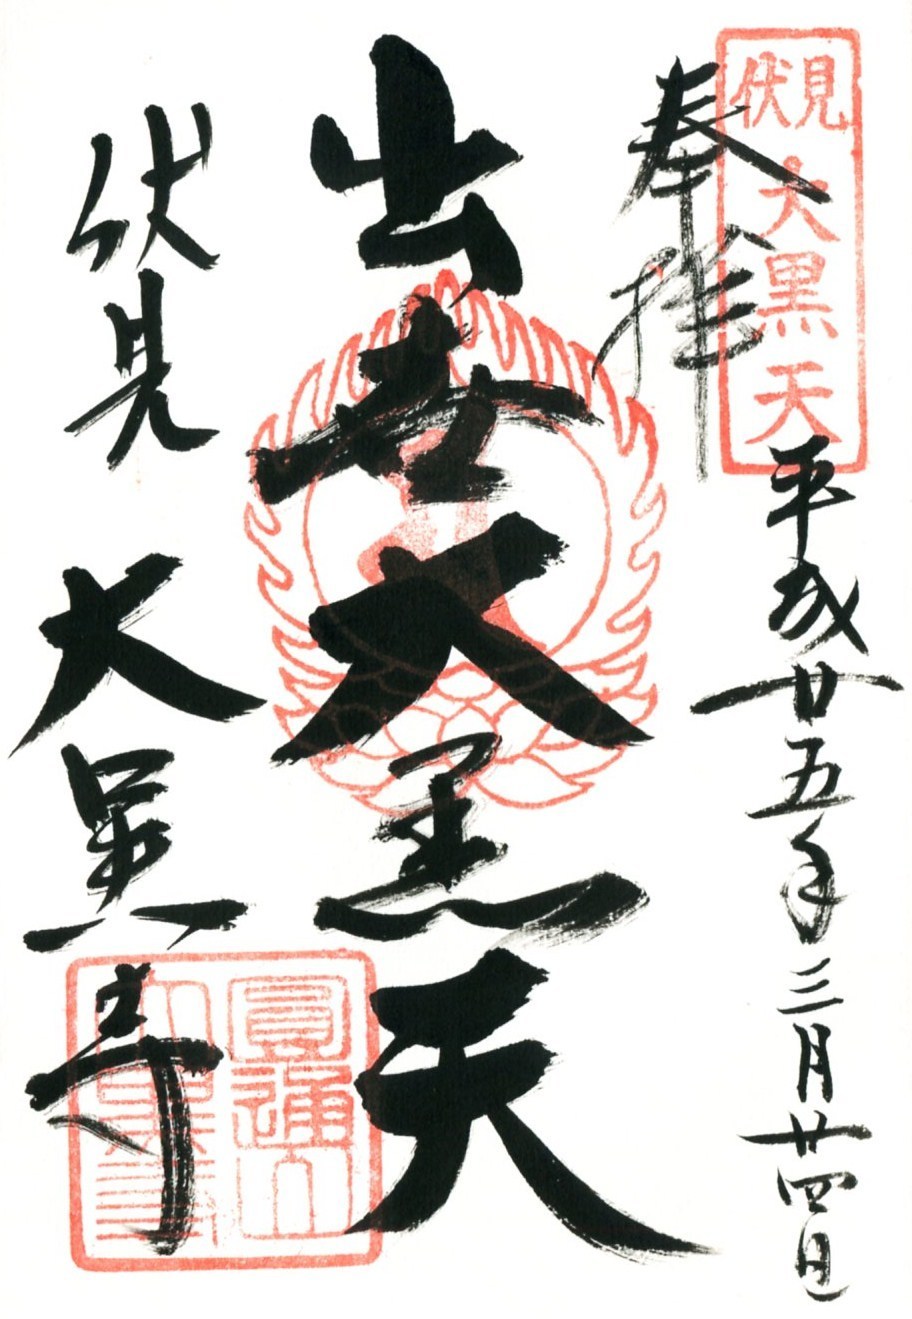 奉拝
伏見
大黒天
平成廿五年三月廿四日
出世大黒天
伏見大黒寺
圓通山
大黒寺